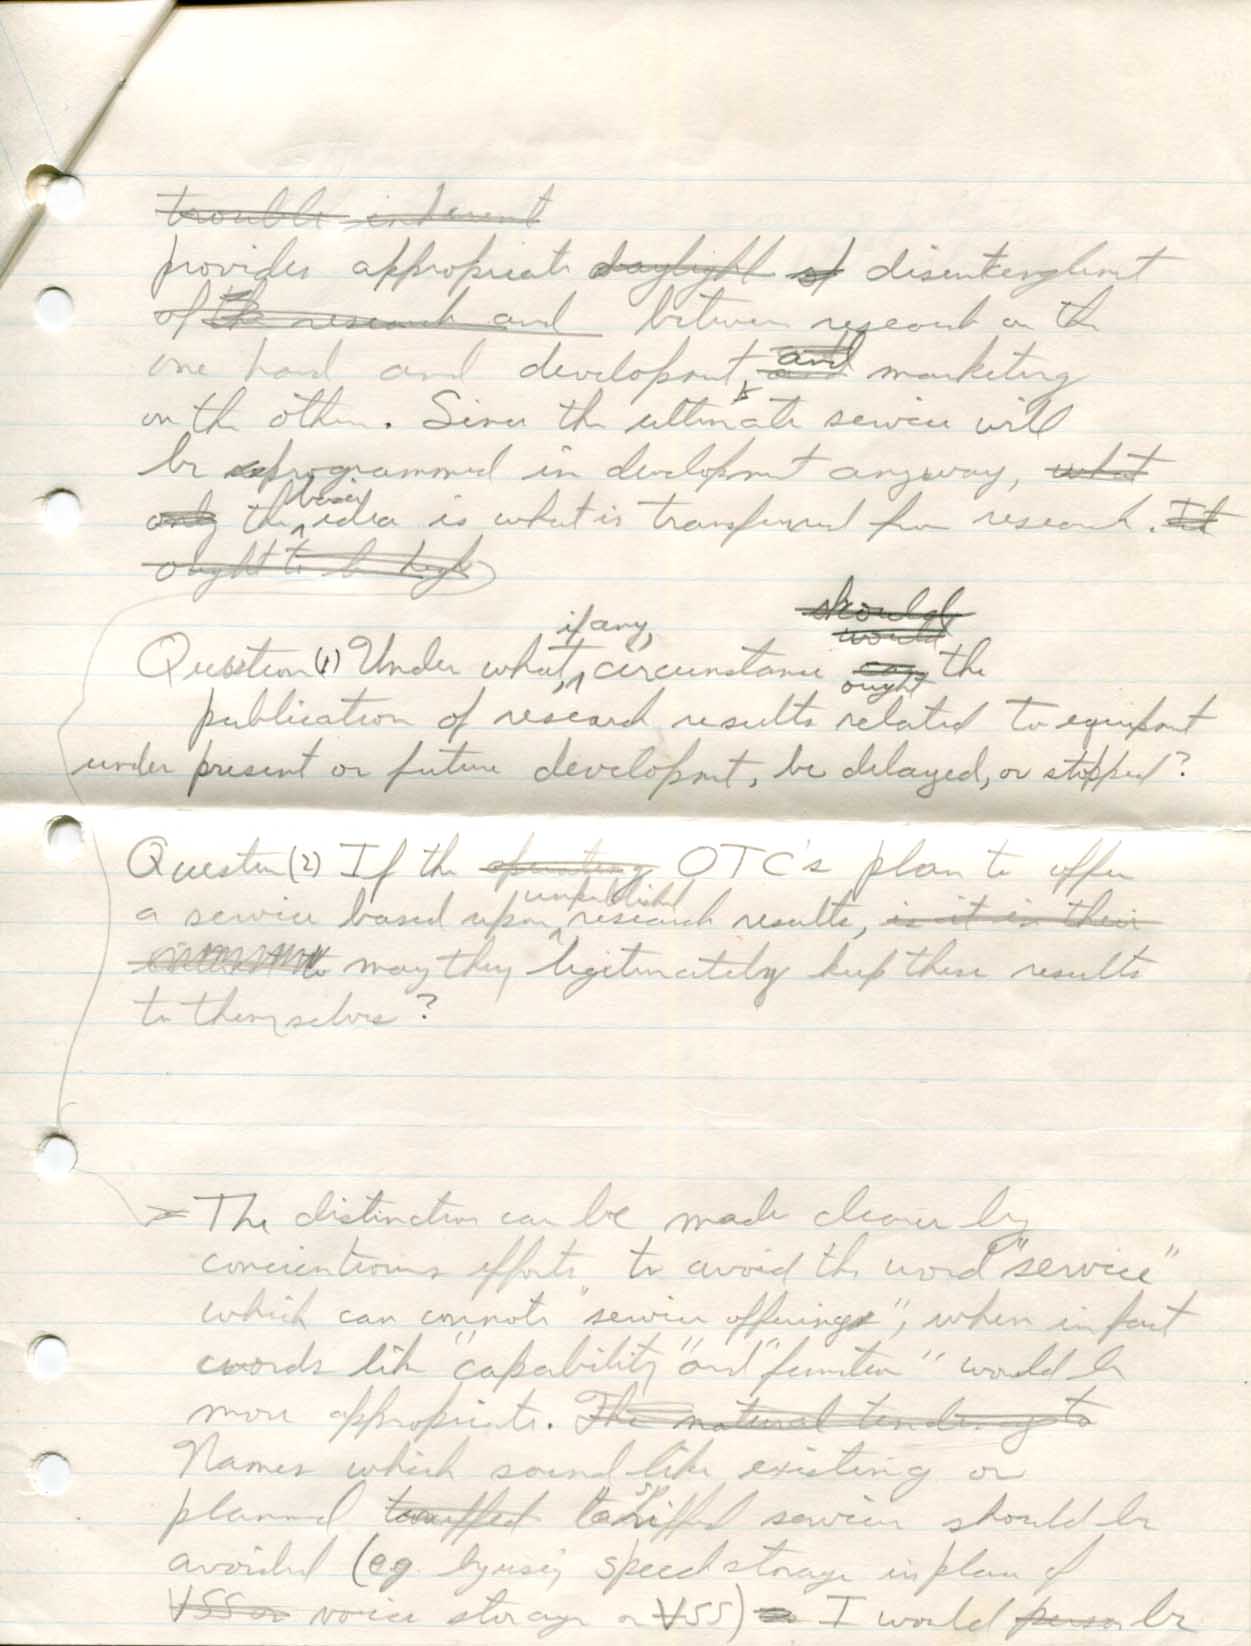 trouble inherent
provides appropriate daylight of disentanglement
of the research and between research on the
one hand and development, and marketing
on the other. Since the ultimate service will
be reprogrammed in development anyway, what
only the basic idea is what is transferred from research. It
ought to be high
Question (1) Under what, if any, circumstance should would can ought the
publication of research results related to equipment
under present or future development, be delayed, or stopped?
Question (2) If the operating OTC's plan to offer
a service based upon unpublished research results, is it in their
interest to may they legitimately keep these results
to themselves?
The distinction can be made clearer by
concientious efforts to avoid the word "service"
which can connote "service offerings", when in fact
words like "capability" and "function" would be
more appropriate. The natural tendency to
Names which sound like existing or
planned tariffed tariffed sp services should be
avoided (eg by using speech storage in place of
VSS or voice storage or VSS) I would person be